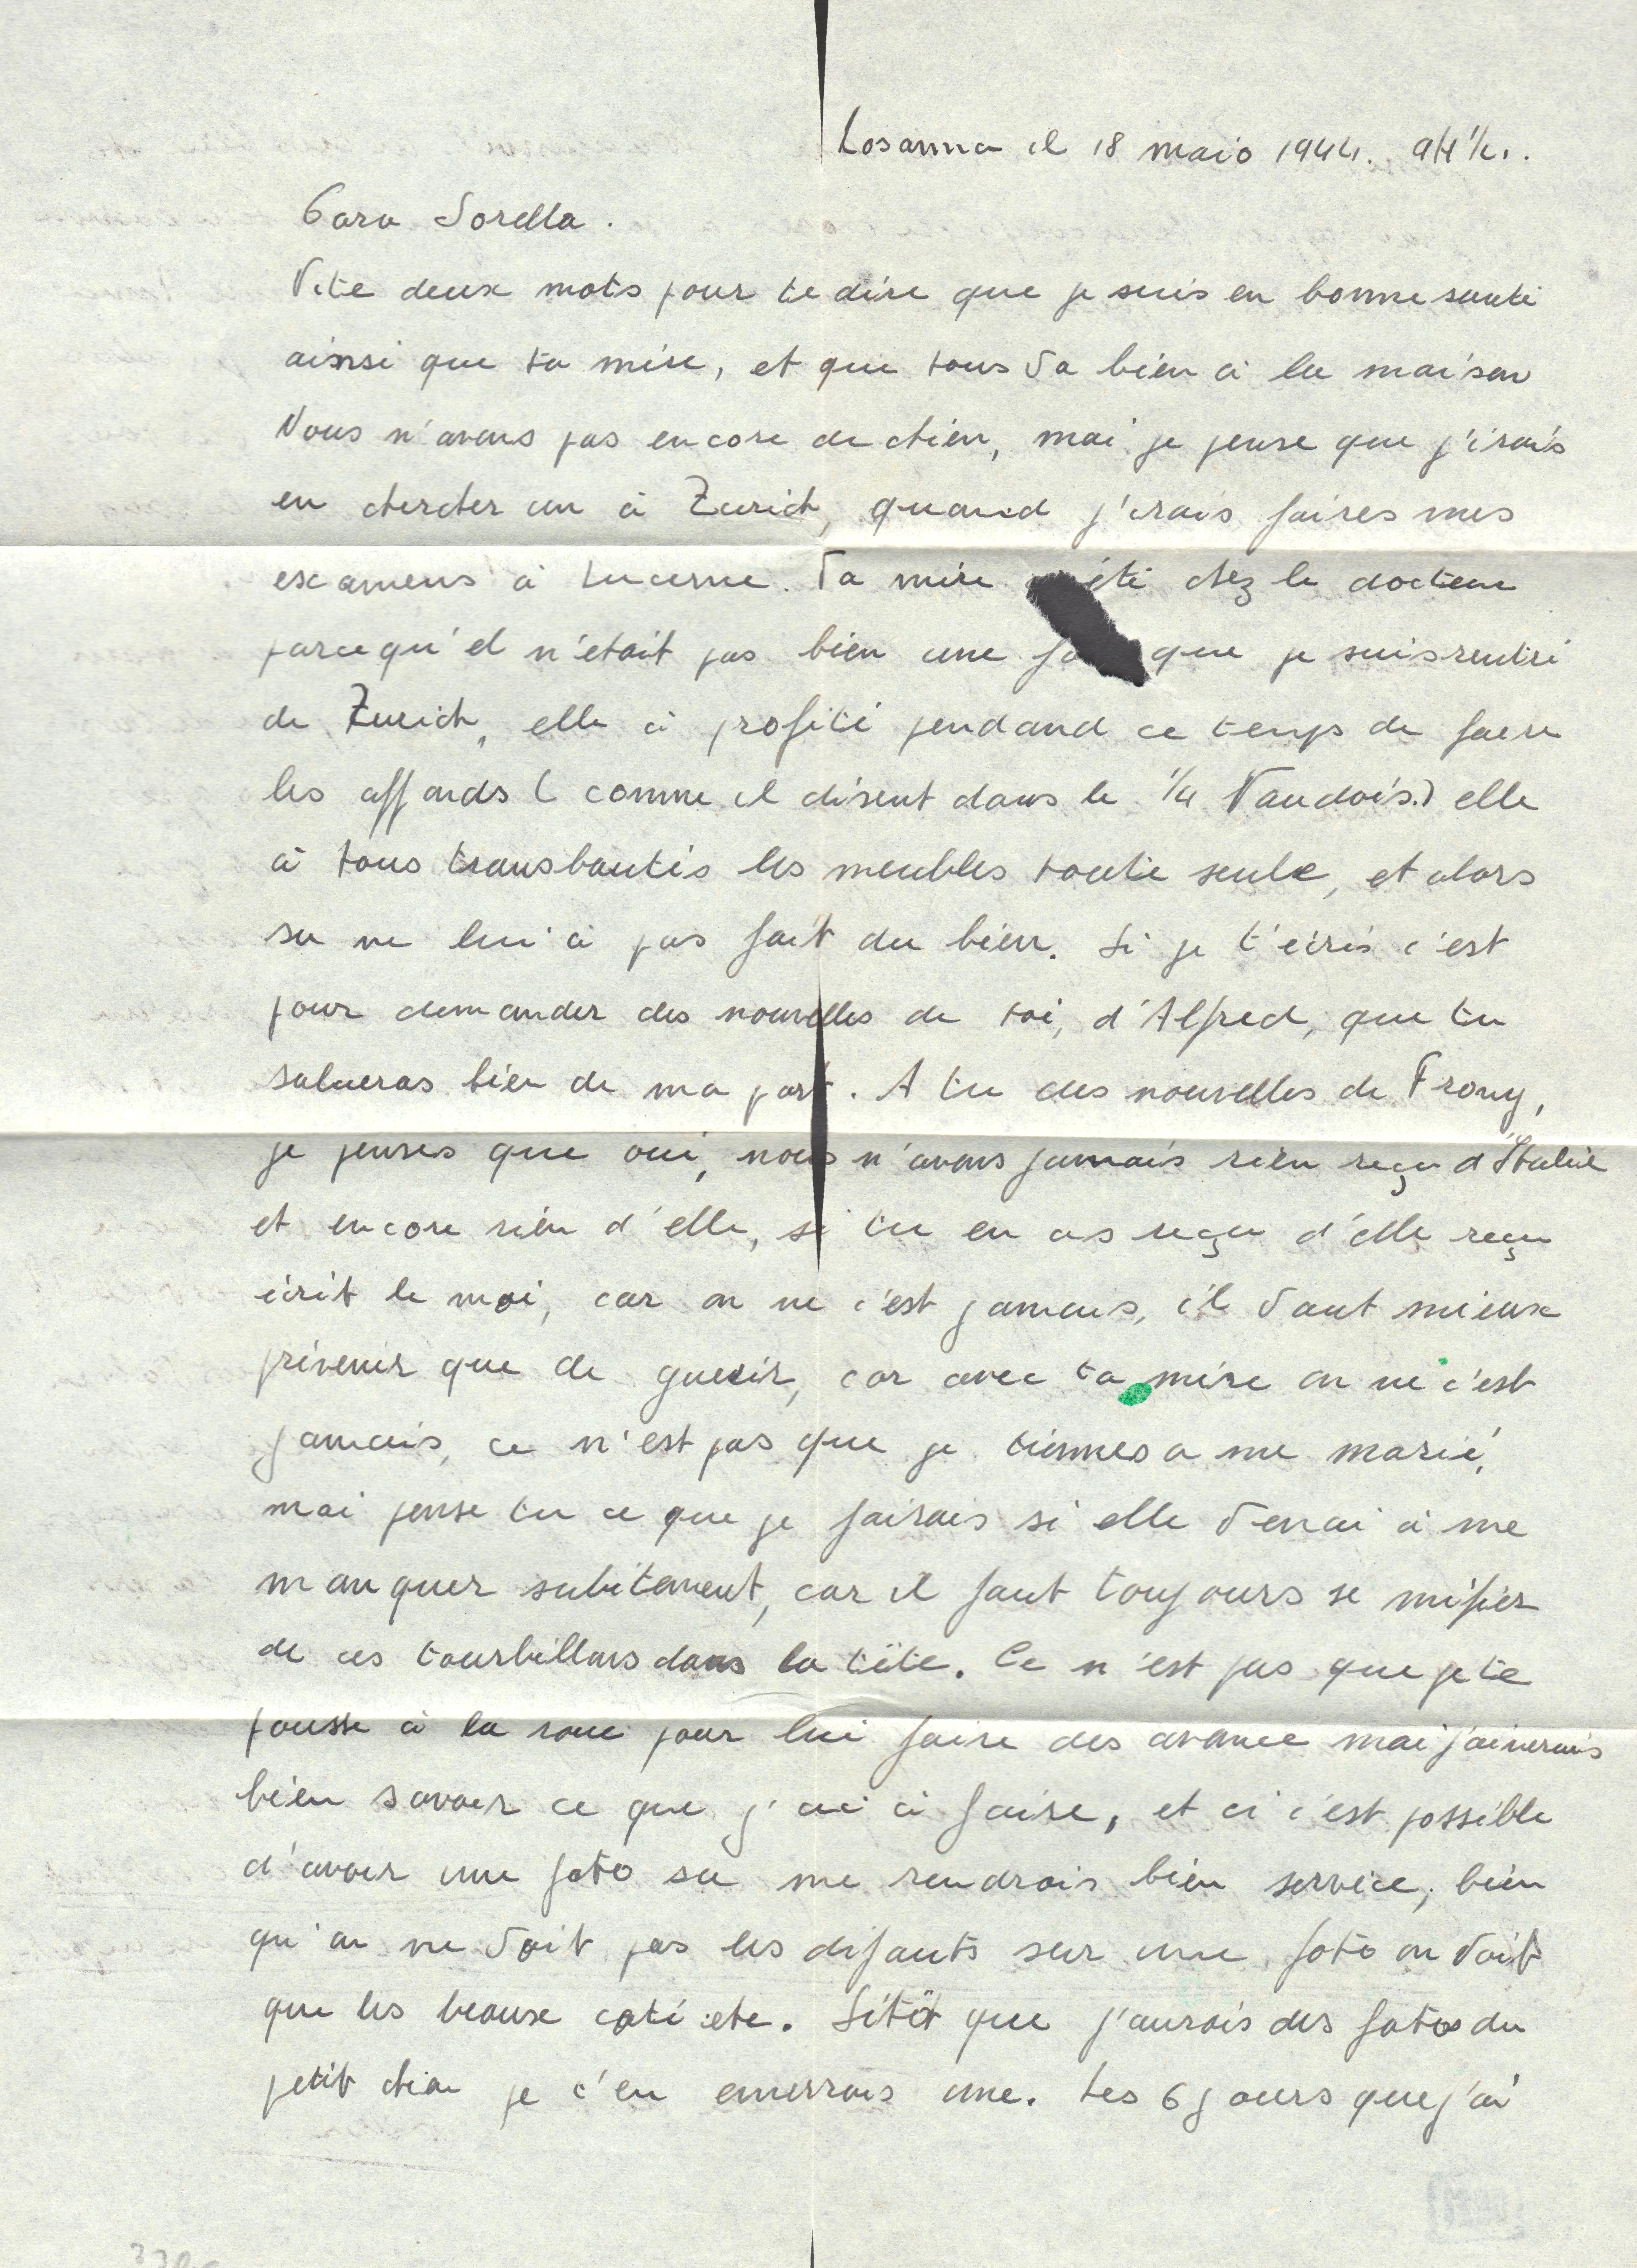 Losanna il 18 maio 1944. 9H½.
Cara Sorella.
Vite deux mots pour te dire que je suis en bonne santé
ainsi que ta mère, et que tous va bien à la maison
Nous n'avons pas encore de chien, mai je pense que j'irais
en chercher un à Zurich, quand j'irais faires mes
examens à Lucerne. Ta mère été chez le docteur
parcequ'el n'était pas bien une que je suis rentré
de Zurich, elle à profité pendand ce temps de faire
les affonds (comme il disent dans le ¼ Vaudois.) elle
à tous transbautés les meubles toute seule, et alors
sa ne lui à pas fait du bien. Si je t'écris c'est
pour demander des nouvelles de toi, d'Alfred, que tu
salueras bien de ma part. A tu des nouvelles de Frony,
je penses que oui, nous n'avons jamais rien reçu d'Italie
et encore rien d'elle, si tu en as reçu d'elle reçu
écrit le moi, car on ne c'est jamais, il vaut mieux
prévenir que de guerir, car avec ta mère on ne c'est
jamais, ce n'est pas que je tiennes a me marié,
mai pense tu ce que je fairais si elle venai à me
manquer subitement, car il faut toujours se méfier
de ces tourbillons dans la tête. Ce n'est pas que je te
pousse à la roue pour lui faire des avance mai j'aimerais
bien savoir ce que j'ai à faire, et ci c'est possible
d'avoir une foto sa me rendrais bien service, bien
qu'on ne voit pas les défauts sur une foto on voit
que les beaux coté etc. Sitôt que j'aurais des fotos du
petit chien je t'en enverrais une. Les 6 jours que j'ai